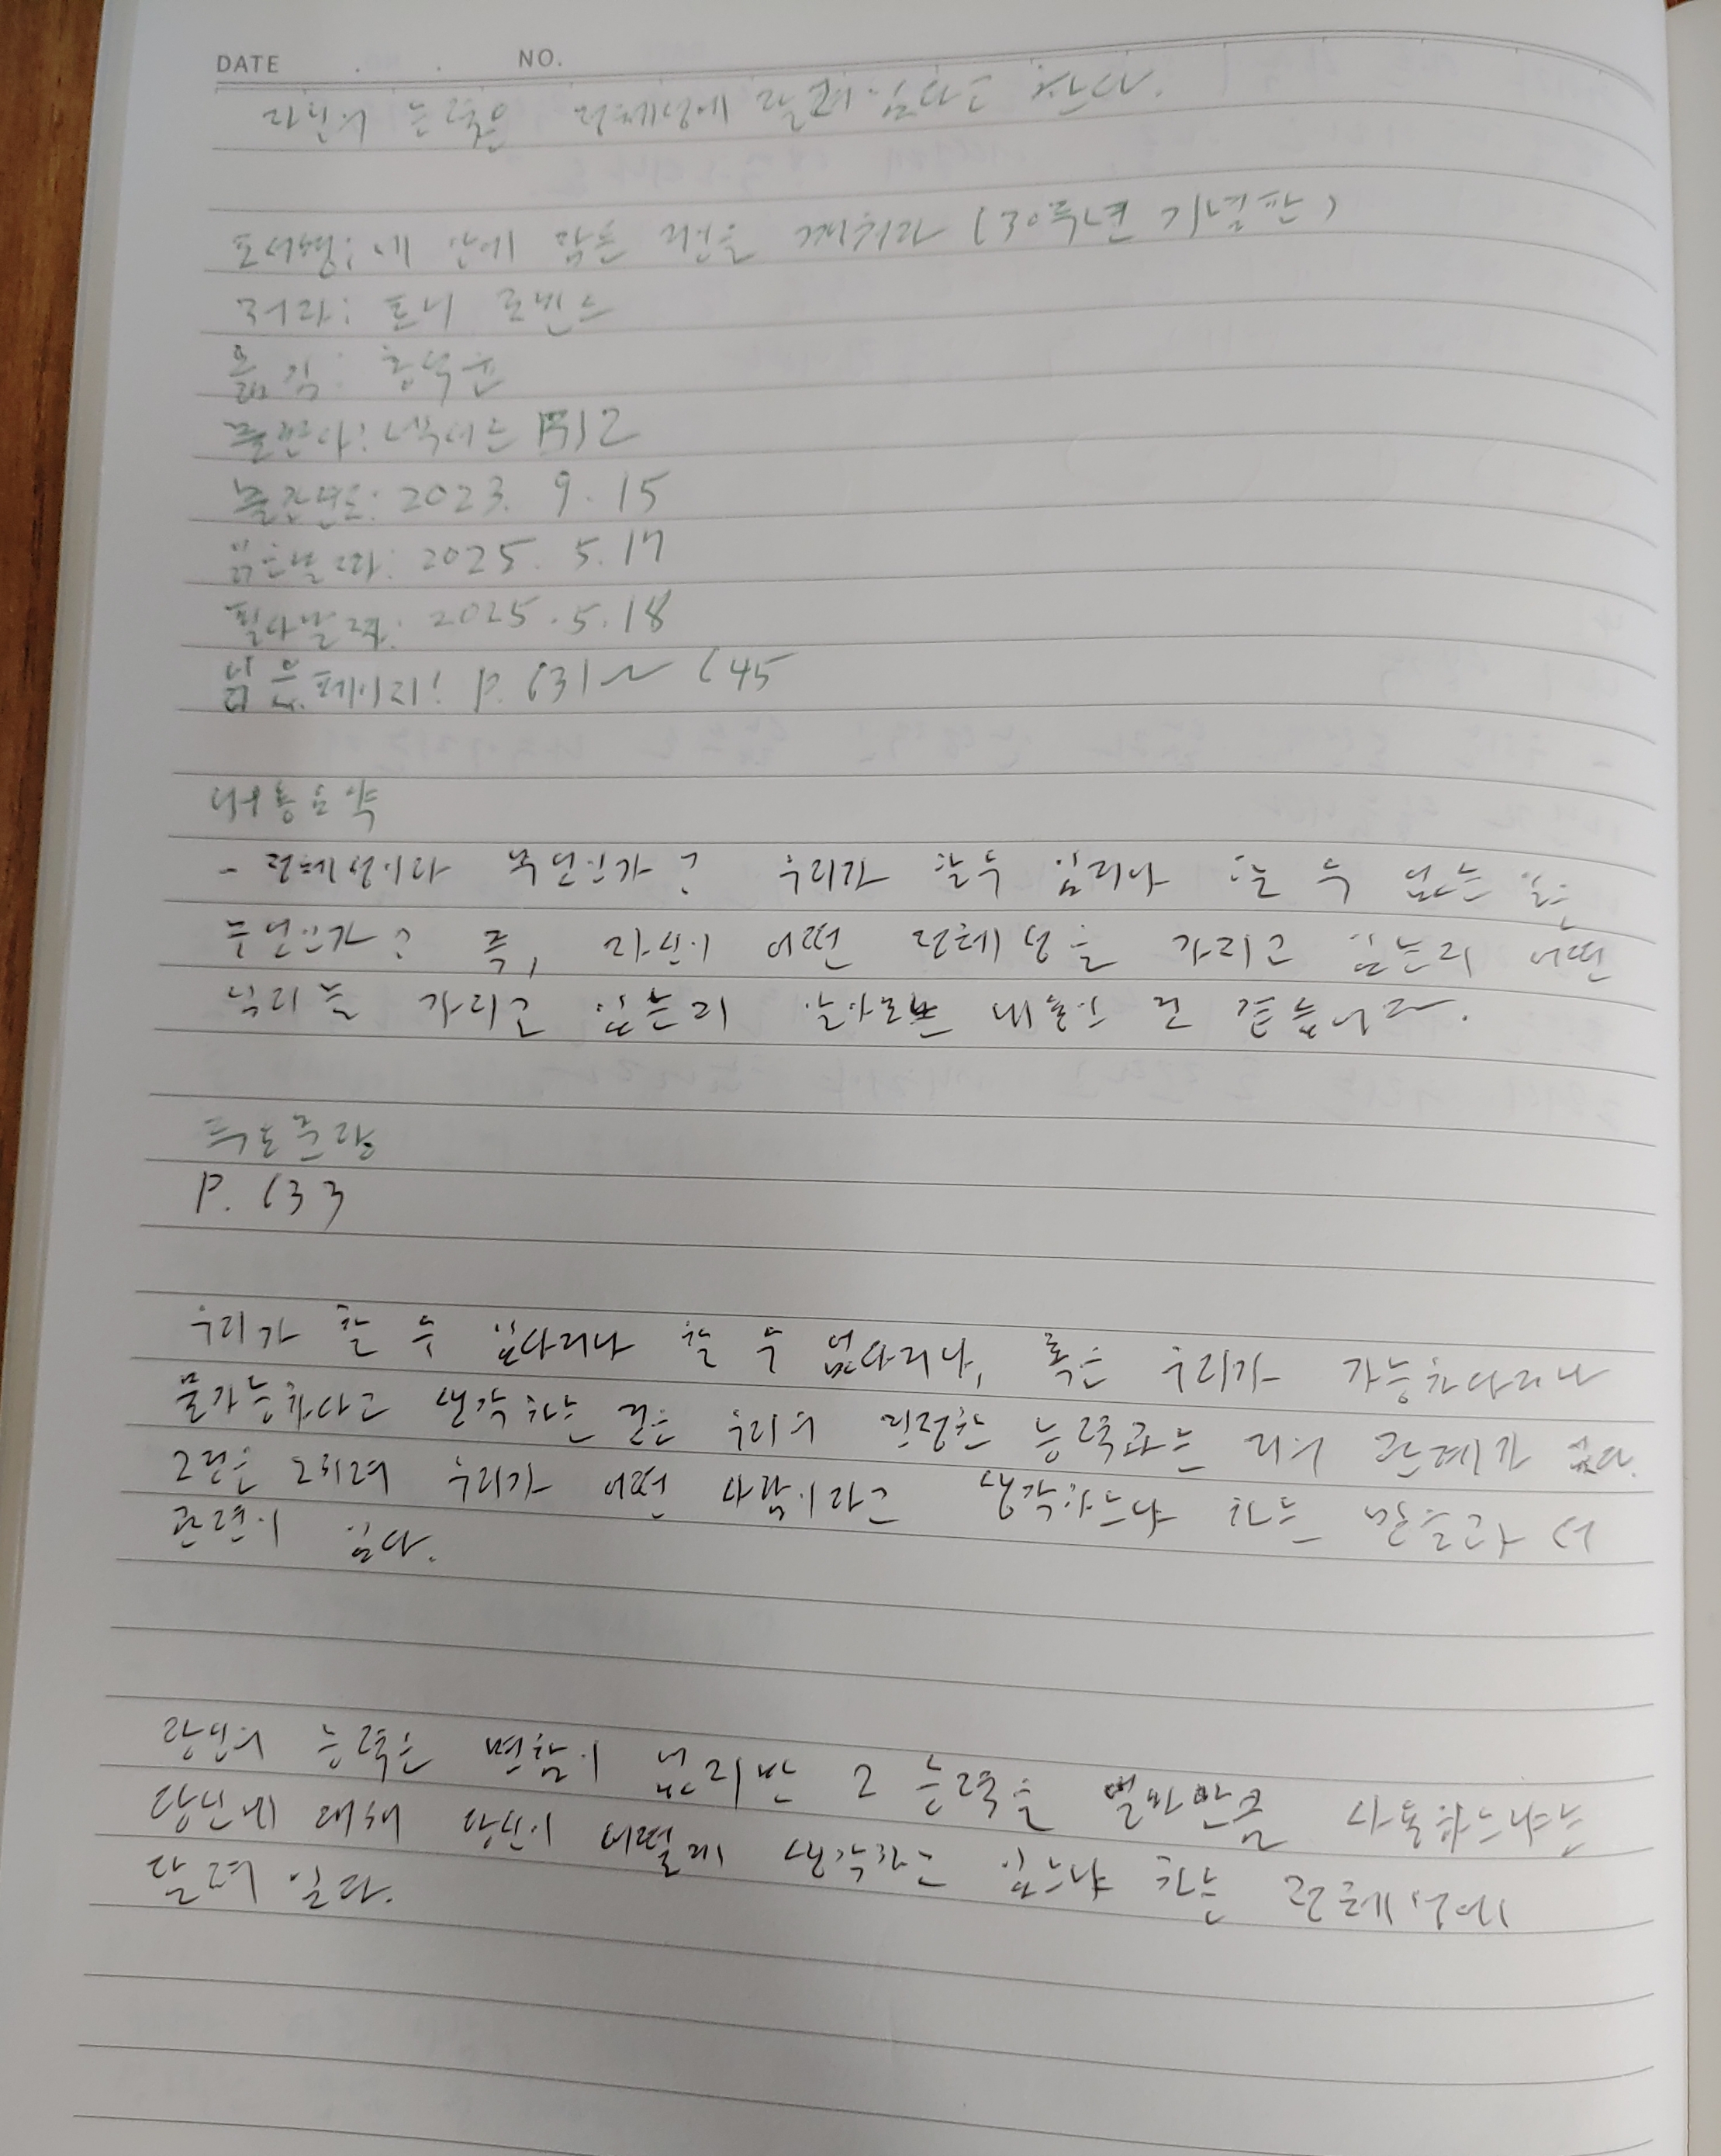 DATE . . NO.
자신의 능력은 정체성에 달려 있다고 한다.
도서명: 네 안에 잠든 거인을 깨워라 (30주년 기념판)
저자: 토니 로빈스
옮김: 홍석윤
출판사: 넥서스 BIZ
출간년도: 2023. 9. 15
읽은날짜: 2025. 5. 17
필사날짜: 2025. 5. 18
읽은페이지: P. 631~645
내용요약
- 정체성이란 무엇인가? 우리가 할수 있거나 할 수 없는 일은
무엇인가? 즉, 자신이 어떤 정체성을 가지고 있는지 어떤
가지고 있는지 알아보는 내용인 것 같습니다.
P. 633
우리가 할 수 있다거나 할 수 없다거나, 혹은 우리가 가능하다거나
불가능하다고 생각하는 것은 우리의 진정한 능력과는 거의 관계가 없다.
그것은 오히려 우리가 어떤 사람이라고 생각하느냐 하는 믿음과 더
관련이 있다.
당신의 능력은 변함이 없지만 그 능력을 얼마만큼 사용하느냐는
당신에 대해 당신이 어떻게 생각하고 있느냐 하는 정체성에
달려 있다.